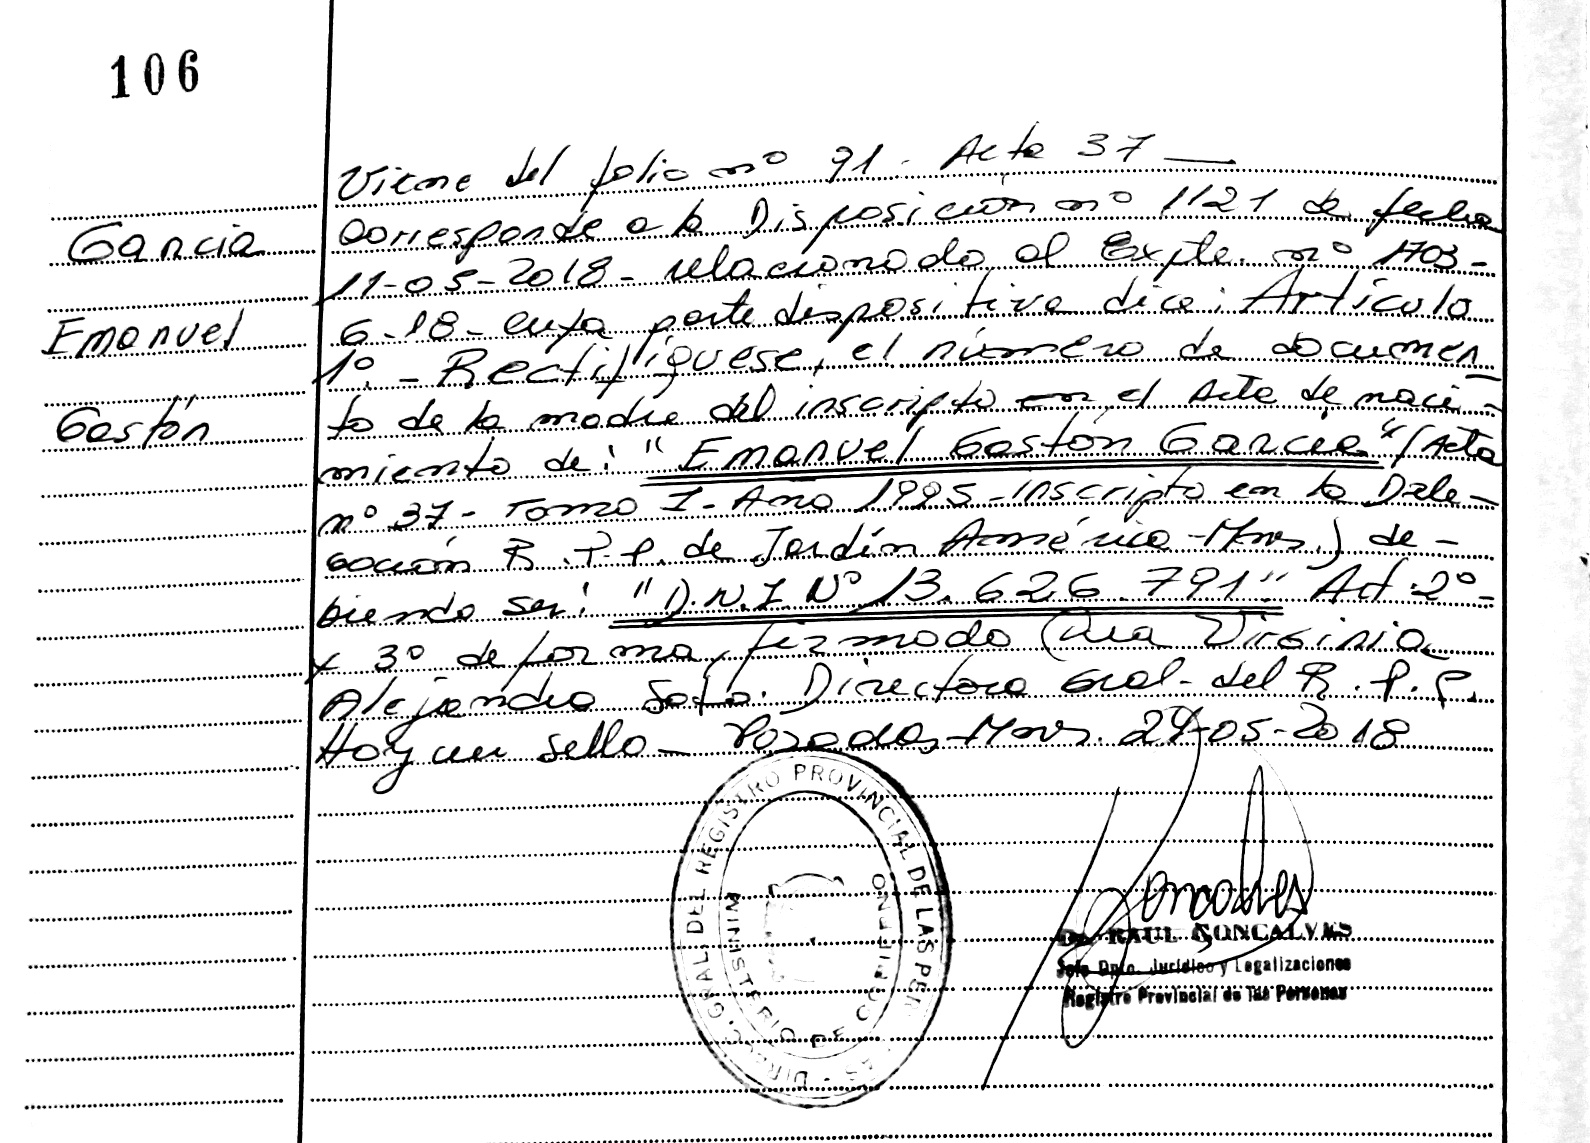 106
Garcia
Emanuel
Gastón
Viene del folio nº 91 - Acta 37 —
Corresponde a la Disposición nº 1121 de fecha
11-05-2018 - relacionado al Expte. nº 1703-
6-18 - cuya parte dispositiva dice: Artículo
1º. - Rectifíquese, el número de documen-
to de la madre del inscripto en el Acta de naci-
miento de: "Emanuel Gastón Garcia" (Acta
nº 37 - Tomo I - Año 1995 - inscripto en la Dele-
gación R.P.P. de Jardín América - Mnes.) de-
biendo ser: "D.N.I. Nº 13.626.791" Art. 2º-
y 3º de forma, firmado Dra Virginia
Alejandra Soto. Directora Gral- del R.P.P.
Hay un sello - Posadas, Mnes. 24-05-2018
DIRECC. GRAL. DEL REGISTRO PROVINCIAL DE LAS PER ES
MINISTERIO DE GOBIERNO
Goncalves
Dr. RAUL GONCALVES
Jefe Dpto. Jurídico y Legalizaciones
Registro Provincial de las Personas